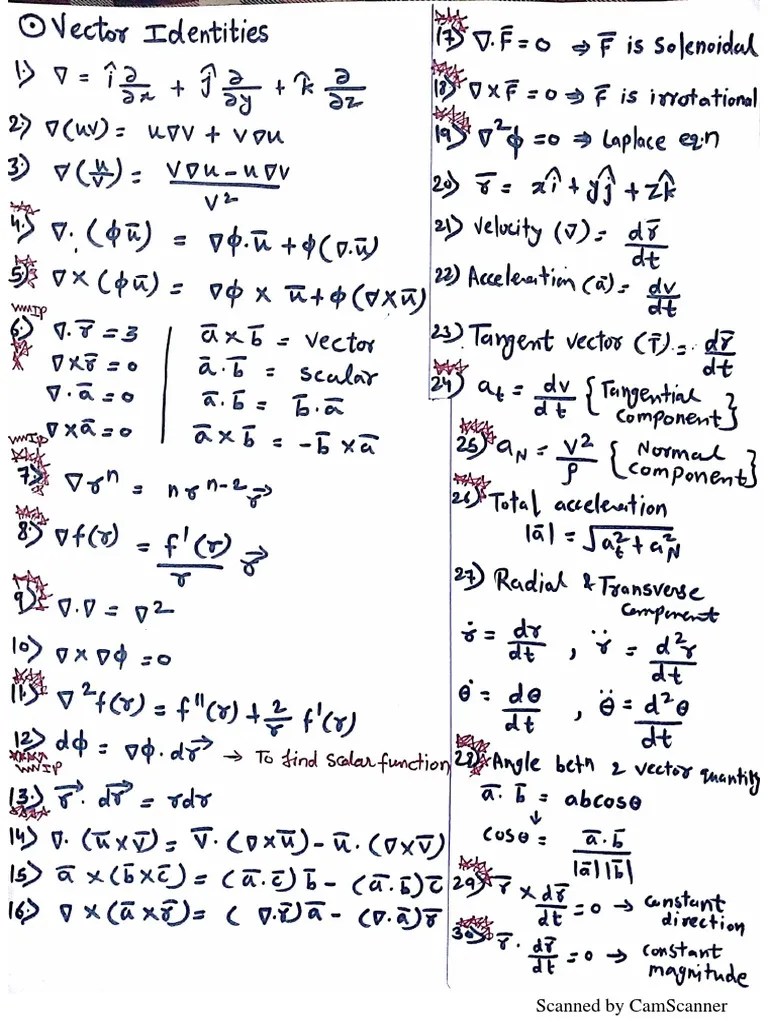 ⊙ Vector Identities
1) ∇ = î ∂/∂x + ĵ ∂/∂y + k̂ ∂/∂z
2) ∇(uv) = u∇v + v∇u
3) ∇(u/v) = (v∇u – u∇v)/v²
4) ∇·(ϕū) = ∇ϕ·ū + ϕ(∇·ū)
5) ∇×(ϕū) = ∇ϕ × ū + ϕ(∇×ū)
VVVIP
6) ∇·r̄ = 3
∇×r̄ = 0
∇·ā = 0
∇×ā = 0
ā × b̄ = vector
ā · b̄ = scalar
ā · b̄ = b̄ · ā
ā × b̄ = –b̄ × ā
VVVIP
7) ∇rⁿ = n rⁿ⁻² r⃗
8) ∇f(r) = f'(r)/r r⃗
9) ∇·∇ = ∇²
10) ∇×∇ϕ = 0
11) ∇²f(r) = f''(r) + 2/r f'(r)
12) dϕ = ∇ϕ · dr⃗ → To find scalar function
VVVIP
13) r⃗ · dr⃗ = rdr
14) ∇·(ū×v̄) = v̄·(∇×ū) – ū·(∇×v̄)
15) ā × (b̄×c̄) = (ā·c̄)b̄ – (ā·b̄)c̄
16) ∇ × (ā×r̄) = (∇·r̄)ā – (∇·ā)r̄
17) ∇·F̄ = 0 ⇒ F̄ is Solenoidal
18) ∇×F̄ = 0 ⇒ F̄ is irrotational
19) ∇²ϕ = 0 ⇒ Laplace eq.n
20) r̄ = xî + yĵ + zk̂
21) Velocity (v̄) = dr̄/dt
22) Acceleration (ā) = dv/dt
23) Tangent vector (T̄) = dr̄/dt
24) at = dv/dt {Tangential
component}
25) aN = v²/ρ {Normal
component}
26) Total acceleration
|ā| = √(at² + aN²)
27) Radial & Transverse
component
ṙ = dr/dt , r̈ = d²r/dt
θ̇ = dθ/dt , θ̈ = d²θ/dt
28) Angle betn 2 vector quantity
ā · b̄ = abcosθ
↓
cosθ = ā·b̄/|ā||b̄|
29) r̄ × dr̄/dt = 0 → constant
direction
30) r̄ · dr̄/dt = 0 → constant
magnitude
Scanned by CamScanner